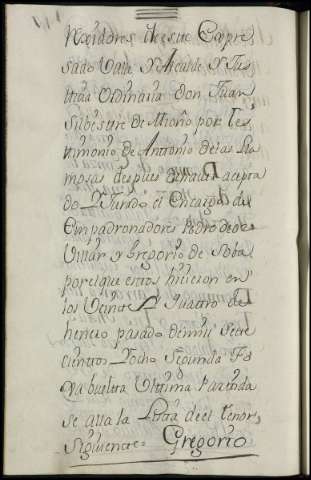 Rexidores de esue Expre,
sado Valle y Alcalde y Jus
ttizia Ordinaria don Juan
Silbestre de Miono por tes,
timonio de Anttonio de las Ra
mosas despues de hauer acepta
do Y Jurado el Encargo de
Empadronadores Pedro de
Villar y Gregorio de Soba
por el que estos hizieron en
los Veinte y quattro de
henero pasado de mil sete
cientos Y ocho Segunda
Ya buelta Ulttima Partida
se alla la Listta de el tenor,
Siguiente= Gregorio